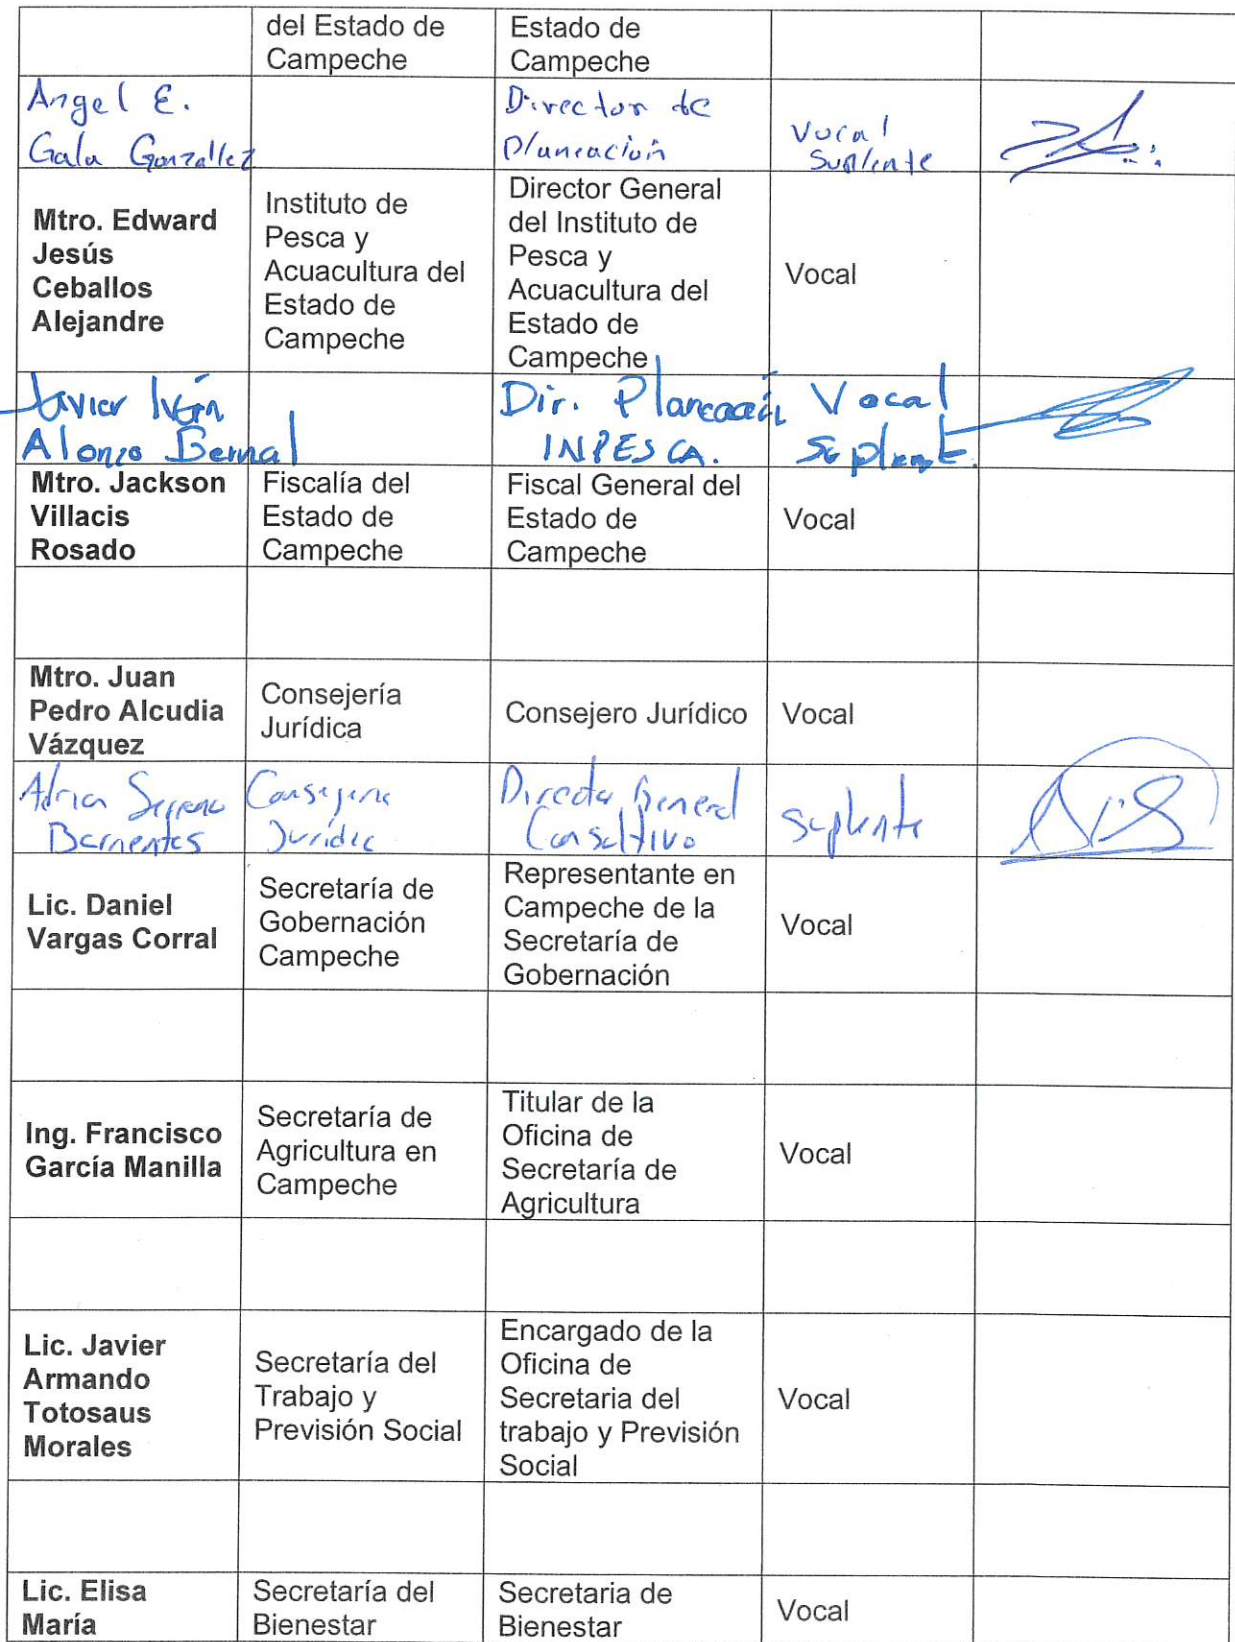 del Estado de
Campeche
Estado de
Campeche
Angel E.
Gala Gonzallez
Director de
Planeación
Vocal
Suplente
Mtro. Edward
Jesús
Ceballos
Alejandre
Instituto de
Pesca y
Acuacultura del
Estado de
Campeche
Director General
del Instituto de
Pesca y
Acuacultura del
Estado de
Campeche
Vocal
Javier Iván
Alonzo Bernal
Dir. Planeación
INPESCA.
Vocal
Suplent.
Mtro. Jackson
Villacis
Rosado
Fiscalía del
Estado de
Campeche
Fiscal General del
Estado de
Campeche
Vocal
Mtro. Juan
Pedro Alcudia
Vázquez
Consejería
Jurídica
Consejero Jurídico
Vocal
Serrano
Barrientos
Consejería
Jurídic
Director General
Consultivo
Suplente
Lic. Daniel
Vargas Corral
Secretaría de
Gobernación
Campeche
Representante en
Campeche de la
Secretaría de
Gobernación
Vocal
Ing. Francisco
García Manilla
Secretaría de
Agricultura en
Campeche
Titular de la
Oficina de
Secretaría de
Agricultura
Vocal
Lic. Javier
Armando
Totosaus
Morales
Secretaría del
Trabajo y
Previsión Social
Encargado de la
Oficina de
Secretaria del
trabajo y Previsión
Social
Vocal
Lic. Elisa
María
Secretaría del
Bienestar
Secretaria de
Bienestar
Vocal